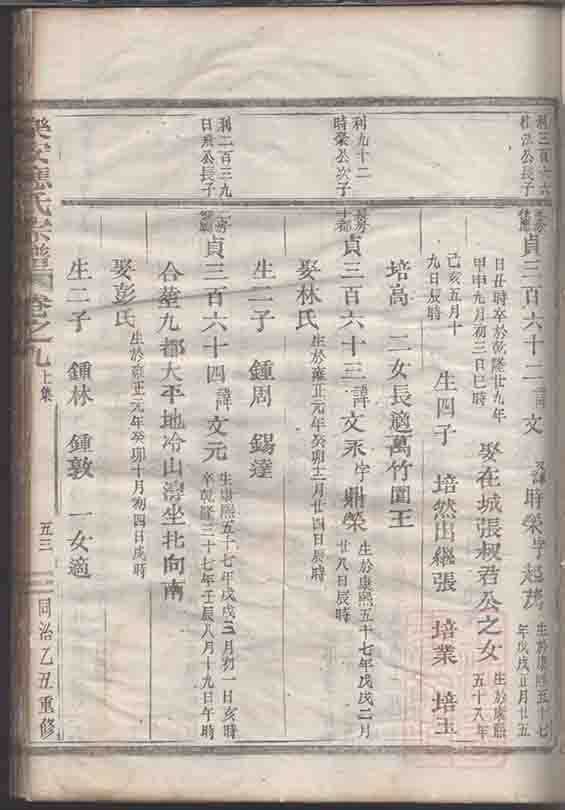 利三百六六
公長子
貞三百六十二諱文 又諱時榮字起茂 生於康熙五十七
年戊戌正月廿五
日丑時卒於乾隆廿九年
甲申九月初三日巳時
娶在城張叔君公之女 生於康熙
五十八年
己亥五月十
九日辰時
生四子 培然出繼張 培業 培玉
培高 二女長適萬竹園王
利九十二
時榮公次子
貞三百六十三諱文禾字鼎榮 生於康熙五十七年戊戌二月
廿八日辰時
娶林氏 生於雍正元年癸卯十二月廿四日辰時
生二子 鍾周 錫達
利二百三九
日公長子
貞三百六十四諱文元 生康熙五十七年戊戌三月初一日亥時
卒乾隆三十七年壬辰八月十九日午時
合葬九都大平地冷山灣坐北向南
娶彭氏 生於雍正元年癸卯十月初四日戌時
生二子 鍾林 鍾敦 一女適
樂安應氏宗譜 卷之九 上集 五三 同治乙丑重修